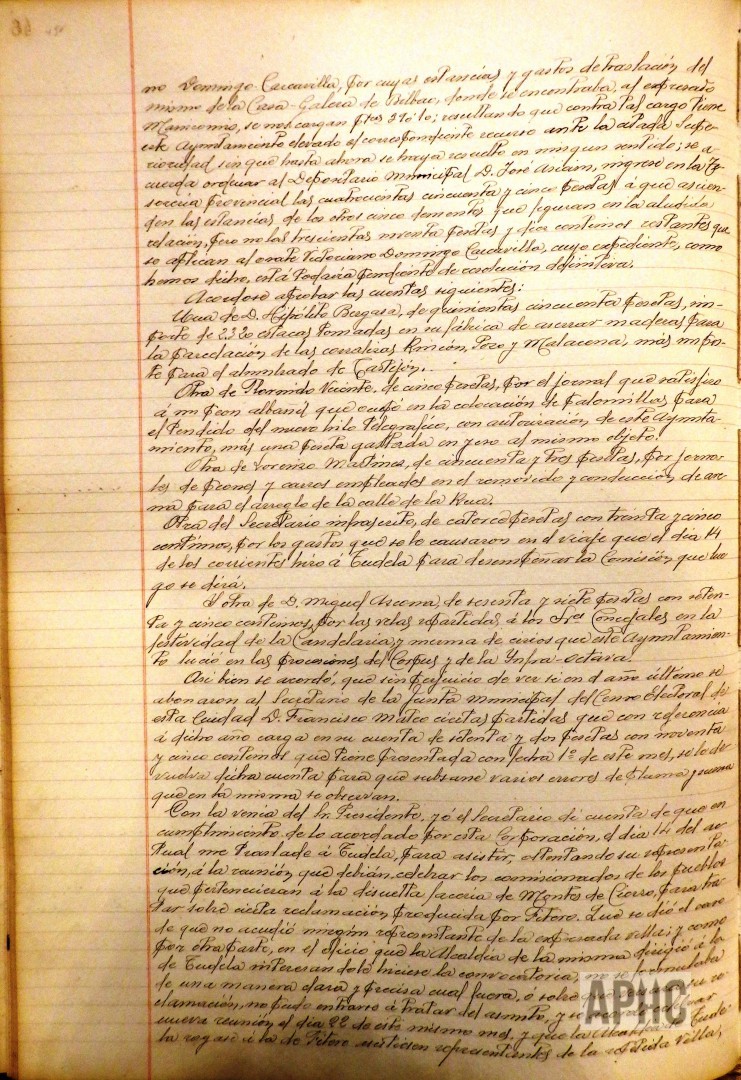 no Domingo Carcavilla, por cuyas estancias y gastos de traslación del
mismo de la Casa-Galera de Bilbao, donde se encontraba, al expresado
Manicomio, se nos cargan ptas 390'10; resultando que contra tal cargo tiene
este Ayuntamiento elevado el correspondiente recurso ante la citada Supe-
rioridad sin que hasta ahora se haya resuelto en ningun sentido; se a-
cuerda ordenar al Depositario municipal D. José Ascain, ingrese en la Te-
sorería provincial las cuatrocientas cincuenta y cinco pesetas á que ascien-
den las estancias de los otros cinco dementes que figuran en la aludida
relación, pero no las trescientas noventa pesetas y diez centimos restantes que
se aplican al orate Victoriano Domingo Carcavilla, cuyo expediente, como
hemos dicho, está todavía pendiente de resolución definitiva.
Acordose aprobar las cuentas siguientes:
Una de D. Hipólito Bergasa, de quinientas cincuenta pesetas, im-
porte de 2.320 estacas tomadas en su fábrica de aserrar maderas para
la paredación de las corralizas Rincón, Pozo y Malacena, más impor-
te para el alambrado de Castejón.
Otra de Plornido Vicente, de cinco pesetas, por el jornal que satisfizo
á un peon albañil que ocupó en la colocación de palomillas para
el tendido del nuevo hilo telegrafico, con autorización de este Ayunta-
miento, más una peseta gastada en yeso al mismo objeto.
Otra de Lorenzo Martinez, de cincuenta y tres pesetas, por jorna-
les de peones y carros empleados en el removido y conducción de are-
na para el arreglo de la calle de la Rua.
Otra del Secretario infrascrito, de catorce pesetas con treinta y cinco
centimos, por los gastos que se le causaron en el viaje que el dia 14
de los corrientes hizo á Tudela para desempeñar la Comisión que lue-
go se dirá.
Y otra de D. Miguel Azcona, de sesenta y siete pesetas con seten-
ta y cinco centimos, por las velas repartidas á los Sres Concejales en la
festividad de la Candelaria y merma de cirios que este Ayuntamien-
to lució en las procesiones del Corpus y de la Infra-octava.
Asi bien se acordó, que sin perjuicio de ver si en el año último se
abonaron al Secretario de la Junta municipal del Censo Electoral de
esta Ciudad D. Francisco Mateo ciertas partidas que con referencia
á dicho año carga en su cuenta de setenta y dos pesetas con noventa
y cinco centimos que tiene presentada con fecha 1º de este mes, se le de-
vuelva dicha cuenta para que subsane varios errores de pluma y suma
que en la misma se observan.
Con la venia del Sr. Presidente, yó el Secretario di cuenta de que en
cumplimiento de lo acordado por esta Corporación, el dia 14 del ac-
tual me trasladé á Tudela, para asistir, ostentando su representa-
ción, á la reunión que debían celebrar los comisionados de los pueblos
que pertenecieran á la disuelta facería de Montes de Cierzo, para tra-
tar sobre cierta reclamación producida por Fitero. Que se dió el caso
de que no acudió ningun representante de la expresada villa; y como
por otra parte, en el oficio que la Alcaldía de la misma dirigió á la
de Tudela interesandole hiciese la convocatoria, no se formulaba
de una manera clara y precisa cual fuera, ó sobre que su re-
clamación, no pudo entrarse á tratar del asunto, y se
nueva reunión el dia 22 de este mismo mes, y que la Alcaldía de Tude-
la rogase á la de Fitero asistiesen representantes de la repetida villa,
APHC